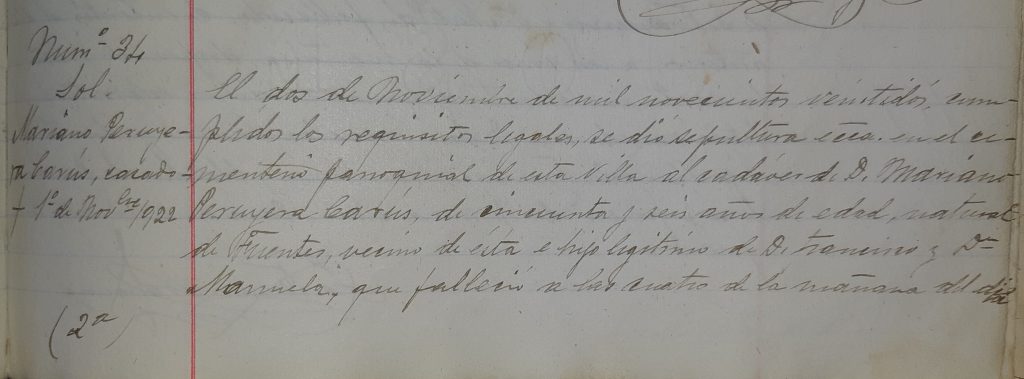 Num.º 34
Sol.
Mariano Peruye-
ra Carús, casado
† 1º de Novbre 1922
(2ª)
El dos de Noviembre de mil novecientos veintidós, cum-
plidos los requisitos legales, se dió sepultura ecca. en el ce-
menterio parroquial de esta Villa al cadáver de D. Mariano
Peruyera Carús, de cincuenta y seis años de edad, natural
de Fuentes, vecino de ésta e hijo legítimo de D. Francisco y Dª
Manuela, que falleció a las cuatro de la mañana del día